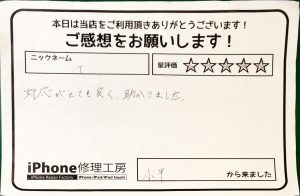 本日は当店をご利用頂きありがとうございます！
ご感想をお願いします！
ニックネーム
I
星評価 ☆☆☆☆☆
対応がとても良く、助かりました。
iPhone修理工房
iPhone Repair Factory iPhone/iPad/iPod touch
小平 から来ました